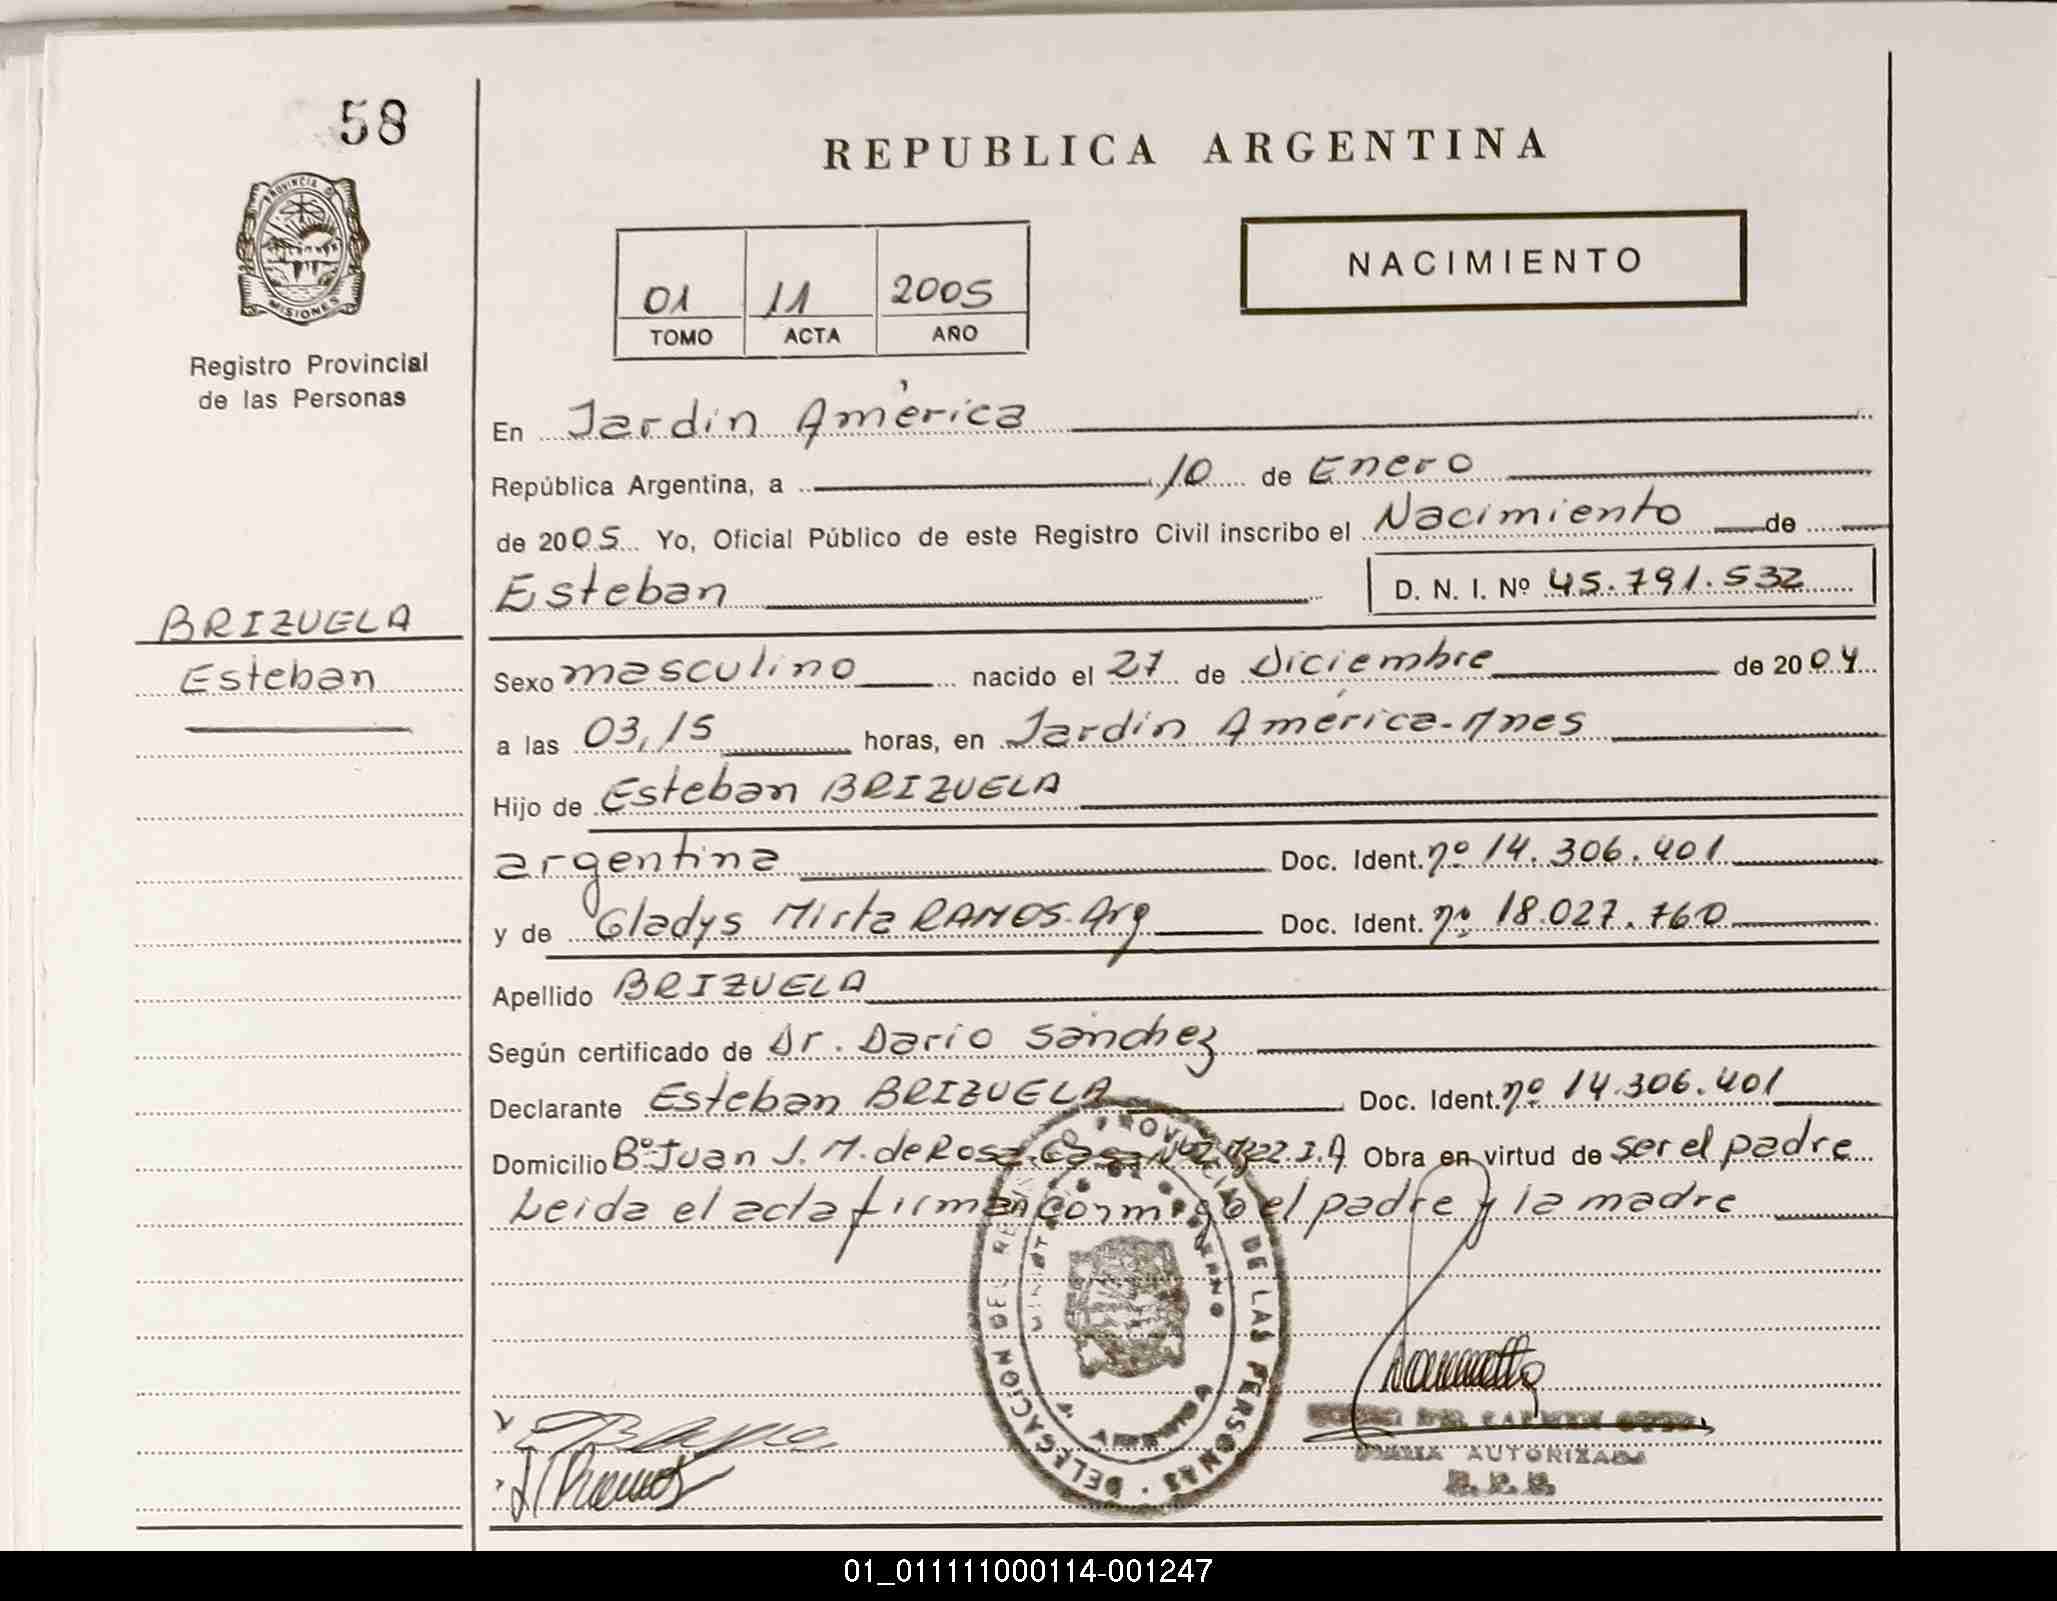 58
REPUBLICA ARGENTINA
PROVINCIA D
MISIONES
Registro Provincial
de las Personas
NACIMIENTO
01 11 2005
TOMO ACTA AÑO
En Jardín América
República Argentina, a 10 de Enero
de 2005 Yo, Oficial Público de este Registro Civil inscribo el Nacimiento de
Esteban D. N. I. Nº 45.791.532
BRIZUELA
Esteban
Sexo masculino nacido el 27 de Diciembre de 2004
a las 03,15 horas, en Jardín América-Mnes
Hijo de Esteban BRIZUELA
argentina Doc. Ident. nº 14.306.401
y de Gladys Mirta RAMOS. Arg Doc. Ident. nº 18.027.760
Apellido BRIZUELA
Según certificado de Dr. Dario Sánchez
Declarante Esteban BRIZUELA Doc. Ident. nº 14.306.401
Domicilio Bº Juan J. M. de Rosa Casa J.A Obra en virtud de ser el padre
Leida el acta firman conmigo el padre y la madre
DELEGACION DEL REGISTRO PROVINCIAL DE LAS PERSONAS
GOBIERNO
DEL CARMEN
AUTORIZADA
01_011111000114-001247